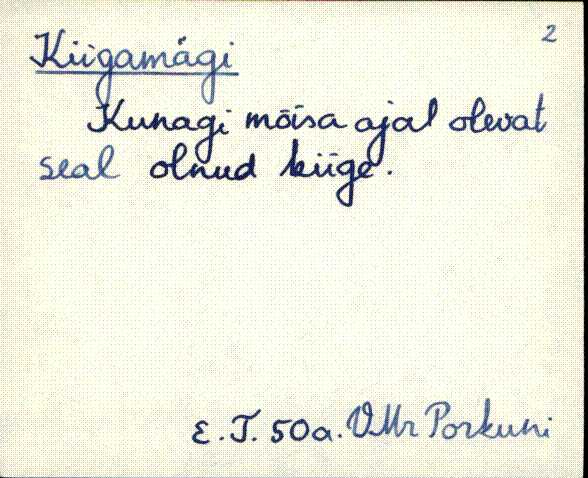 2
Kiigamägi
Kunagi mõisa ajal olevat
seal olnud kiige.
E.T. 50a. VMr Porkuni